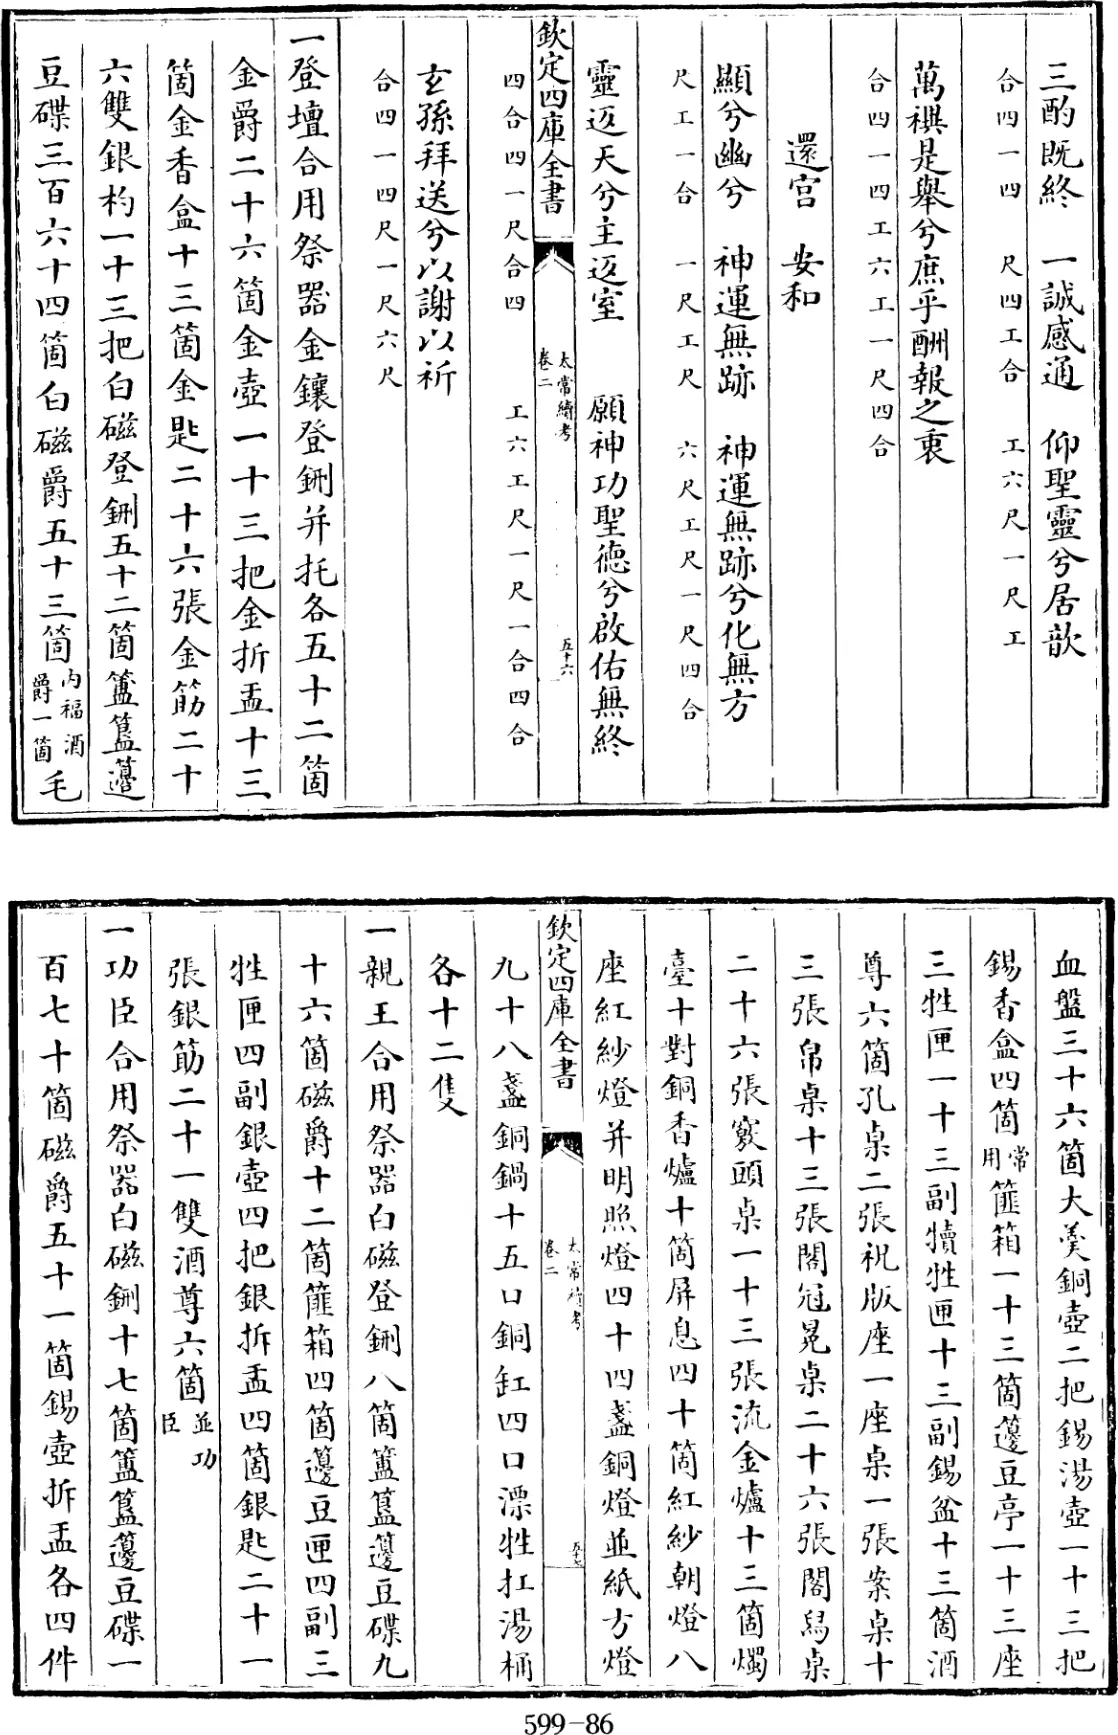 三酌既終　一誠感通　仰聖靈兮居歆
合四一四　尺四工合　工六尺一尺工
萬禩是舉兮庶乎酬報之衷
合四一四工六工一尺四合
還宮　安和
顯兮幽兮　神運無跡　神運無跡兮化無方
尺工一合　一尺工尺　六尺工尺一尺四合
靈返天兮主返室　願神功聖德兮啟佑無終
欽定四庫全書
太常續考
卷二
五十六
四合四一尺合四　工六工尺一尺一合四合
玄孫拜送兮以謝以祈
合四一四尺一尺六尺
一登壇合用祭器金鑲登鉶并托各五十二箇
金爵二十六箇金壺一十三把金折盂十三
箇金香盒十三箇金匙二十六張金筯二十
六雙銀杓一十三把白磁登鉶五十二箇簠簋籩
豆碟三百六十四箇白磁爵五十三箇內福酒爵一箇毛
血盤三十六箇大羹銅壺二把錫湯壺一十三把
錫香盒四箇常用篚箱一十三箇籩豆亭一十三座
三牲匣一十三副犢牲匣十三副錫盆十三箇酒
尊六箇孔桌二張祝版座一座桌一張案桌十
三張帛桌十三張閣冠冕桌二十六張閣舄桌
二十六張竅頭桌一十三張流金爐十三箇燭
臺十對銅香爐十箇屏息四十箇紅紗朝燈八
座紅紗燈并明照燈四十四盞銅燈並紙方燈
欽定四庫全書
太常續考
卷二
五十七
九十八盞銅鍋十五口銅缸四口漂牲扛湯桶
各十二隻
一親王合用祭器白磁登鉶八箇簠簋籩豆碟九
十六箇磁爵十二箇篚箱四箇籩豆匣四副三
牲匣四副銀壺四把銀拆盂四箇銀匙二十一
張銀筯二十一雙酒尊六箇並功臣
一功臣合用祭器白磁鉶十七箇簠簋籩豆碟一
百七十箇磁爵五十一箇錫壺拆盂各四件
599-86